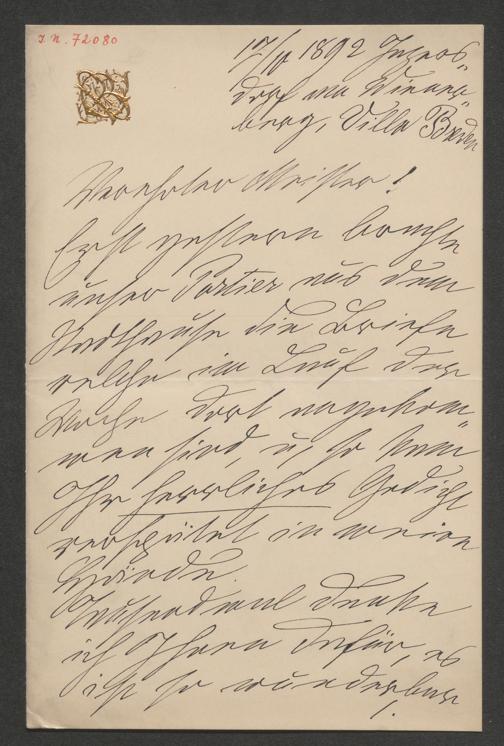 I. N. 72080
17/10 1892 Inzers-
dorf am Wiener-
berg, Villa
Verehrter Meister!
Erst gestern brachte
unser Portier aus dem
Stadthause die Briefe
welche im Lauf der
Woche dort angekom-
men sind, u. so kam
Ihr herrliches Gedicht
verspätet in meine
Hände.
Tausendmal danke
ich Ihnen dafür, es
ist so wunderbar
!